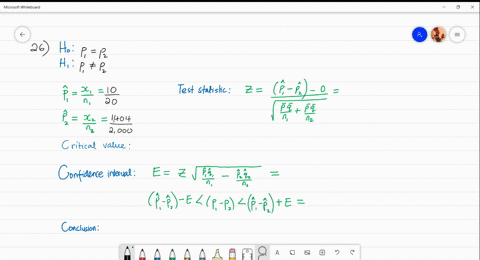 Microsoft Whiteboard
26) H₀: p₁ = p₂
H₁: p₁ ≠ p₂
p̂₁ = x₁/n₁ = 10/20
p̂₂ = x₂/n₂ = 1,404/2,000
Test statistic: Z = ((p̂₁ - p̂₂) - 0) / √(p̄q̄/n₁ + p̄q̄/n₂) =
Critical value:
Confidence interval: E = Z √(p̂₁q̂₁/n₁ - p̂₂q̂₂/n₂) =
(p̂₁ - p̂₂) - E < (p₁ - p₂) < (p̂₁ - p̂₂) + E =
Conclusion: